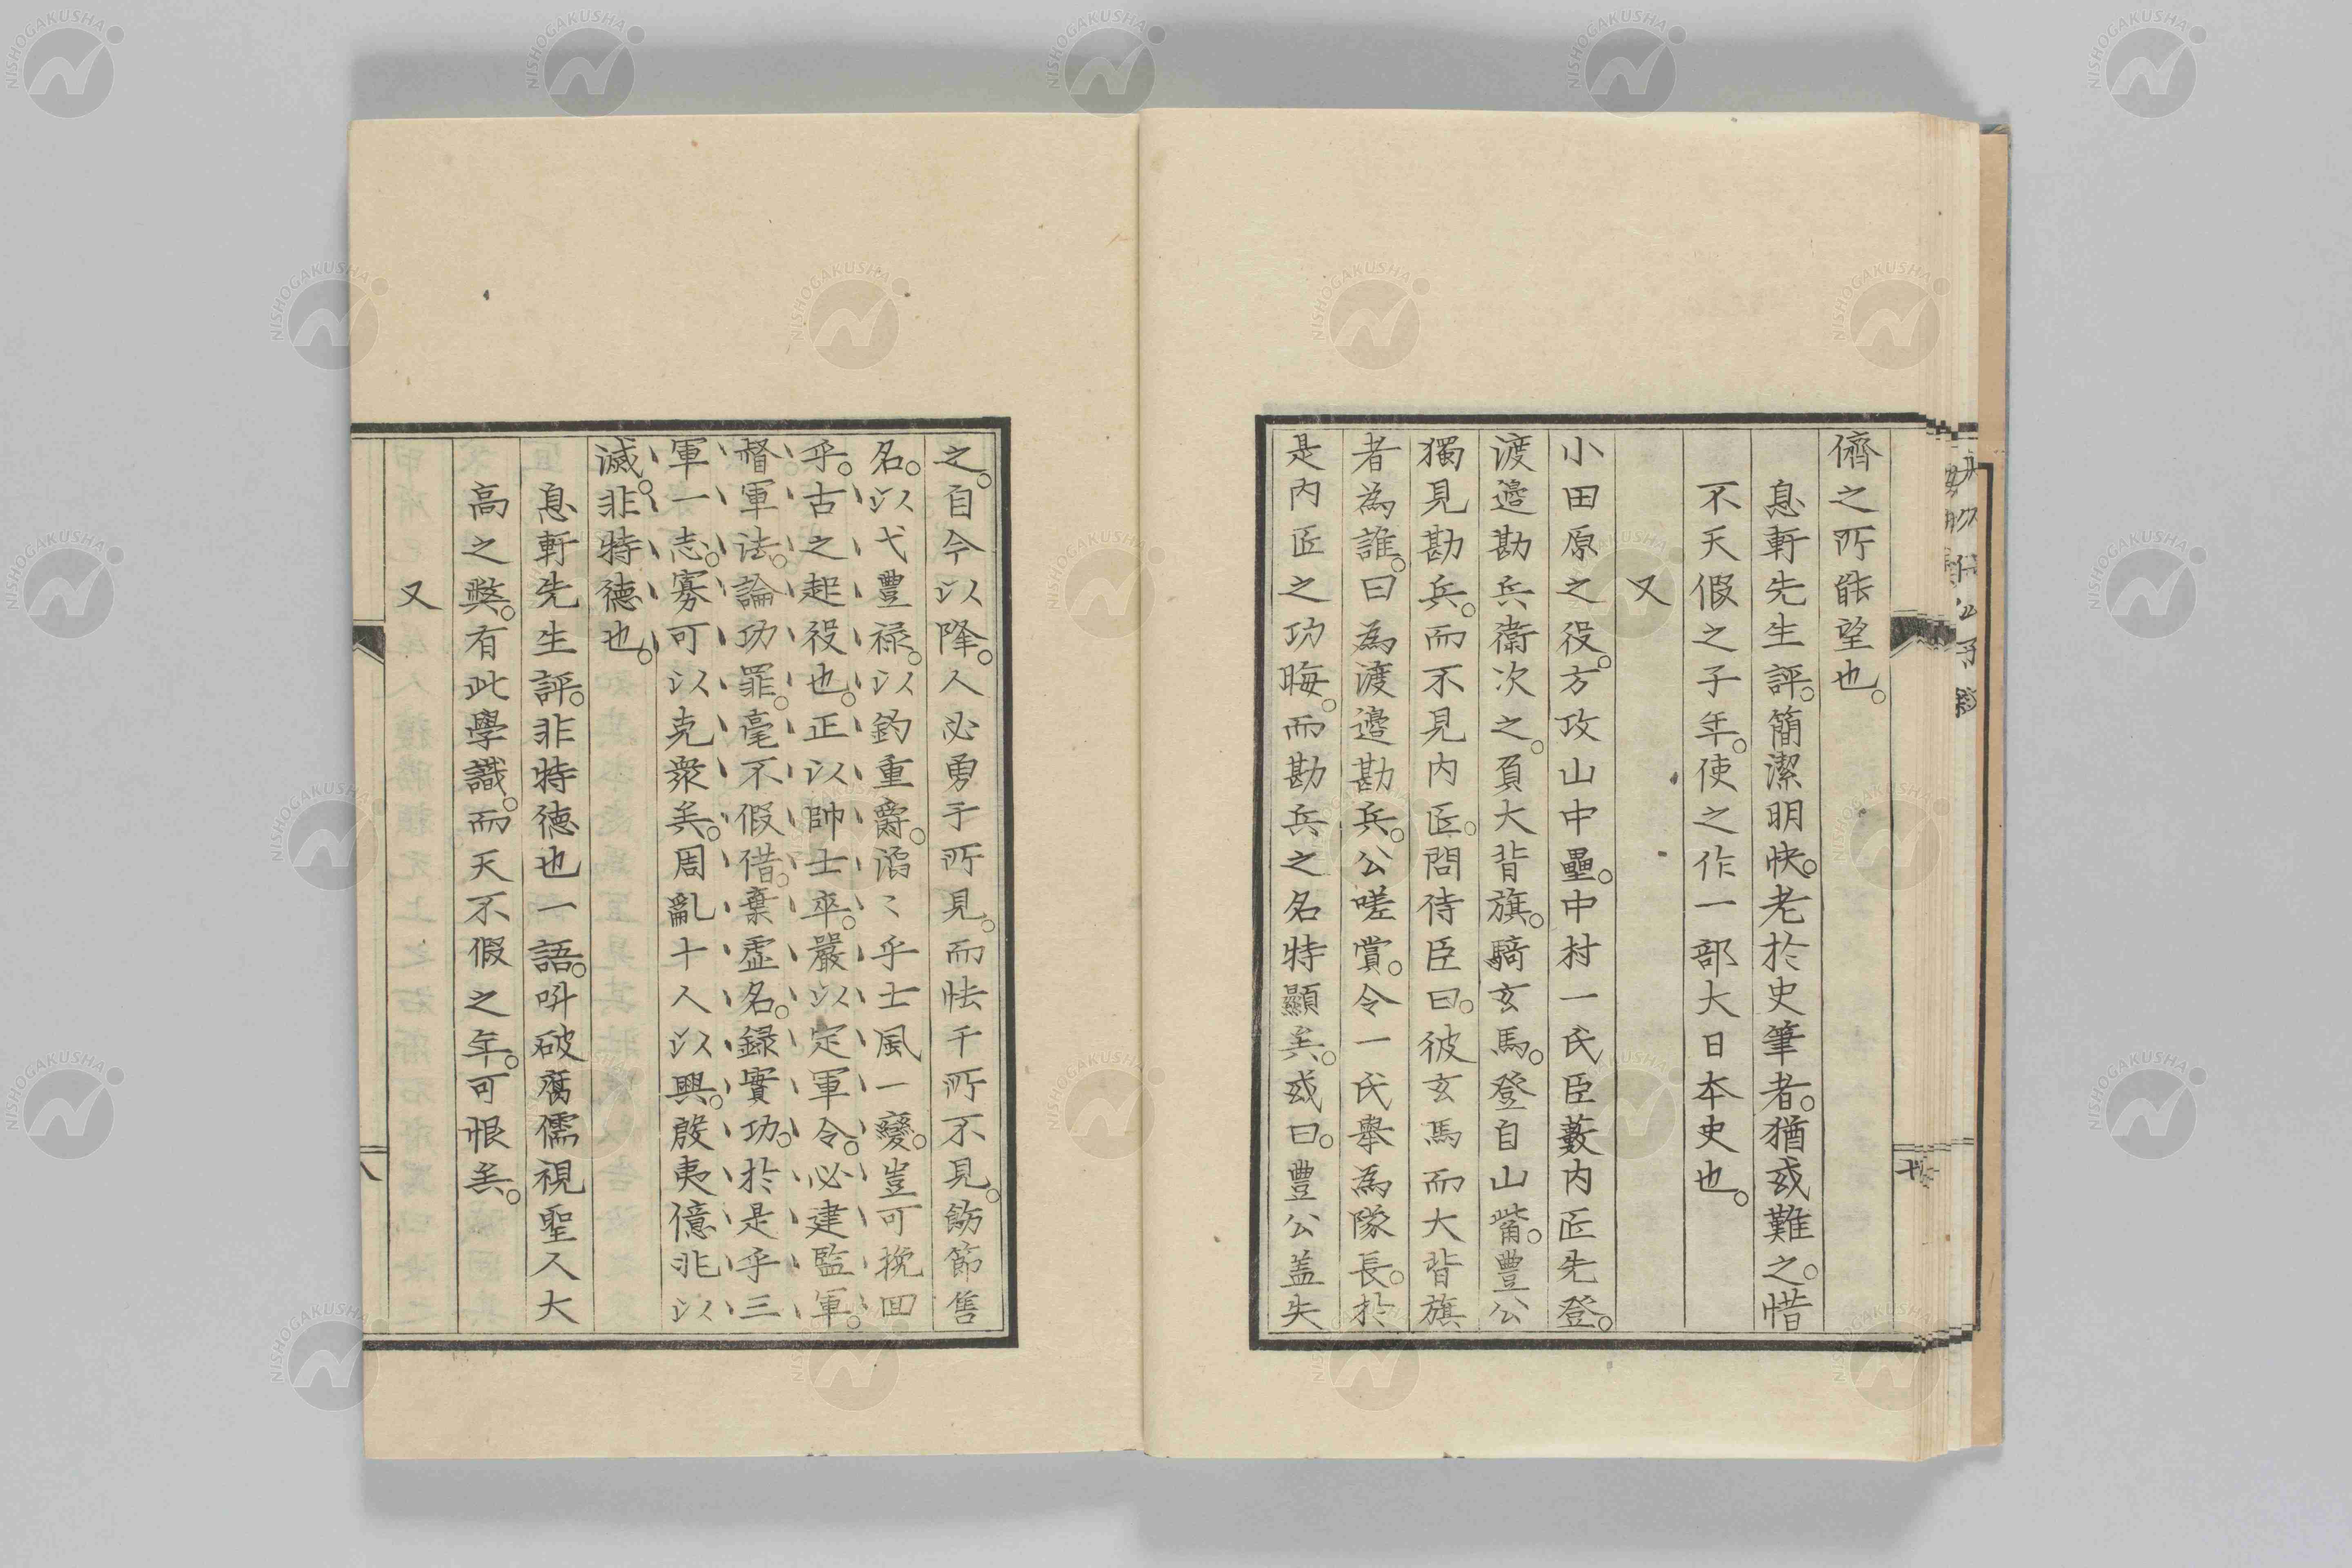 儕之所能望也。
息軒先生評。簡潔明快。老於史筆者。猶或難之。惜
不天假之子年。使之作一部大日本史也。
又
小田原之役。方攻山中壘。中村一氏臣藪內匠先登。
渡邉勘兵衛次之。負大背旗。騎玄馬。登自山觜。豐公
獨見勘兵。而不見內匠。問侍臣曰。彼玄馬而大背旗
者為誰。曰為渡邉勘兵。公嗟賞。令一氏舉為隊長。於
是內匠之功晦。而勘兵之名特顯矣。或曰。豐公盖失
之。自今以降。人必勇于所見。而怯于所不見。飭節售
名。以弋豐祿。以釣重爵。滔〻乎士風一變。豈可挽回
乎。古之起役也。正以帥士卒。嚴以定軍令。必建監軍。
督軍法。論功罪。毫不假借。棄虛名。錄實功。於是乎三
軍一志。寡可以克衆矣。周亂十人以興。殷夷億兆以
滅。非特德也。
息軒先生評。非特德也一語。叫破腐儒視聖人大
高之弊。有此學識。而天不假之年。可恨矣。
又
八
NISHOGAKUSHA